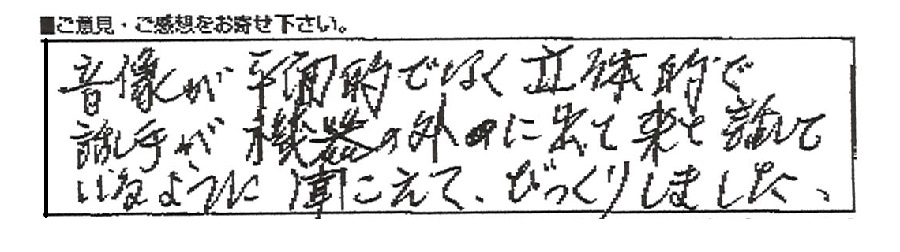 ■ご意見・ご感想をお寄せ下さい。
音像が平面的でなく立体的で
話し手が機器の外に出て来て話して
いるように聞こえて、びっくりしました、